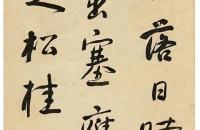 落日時
出塞雁
松桂